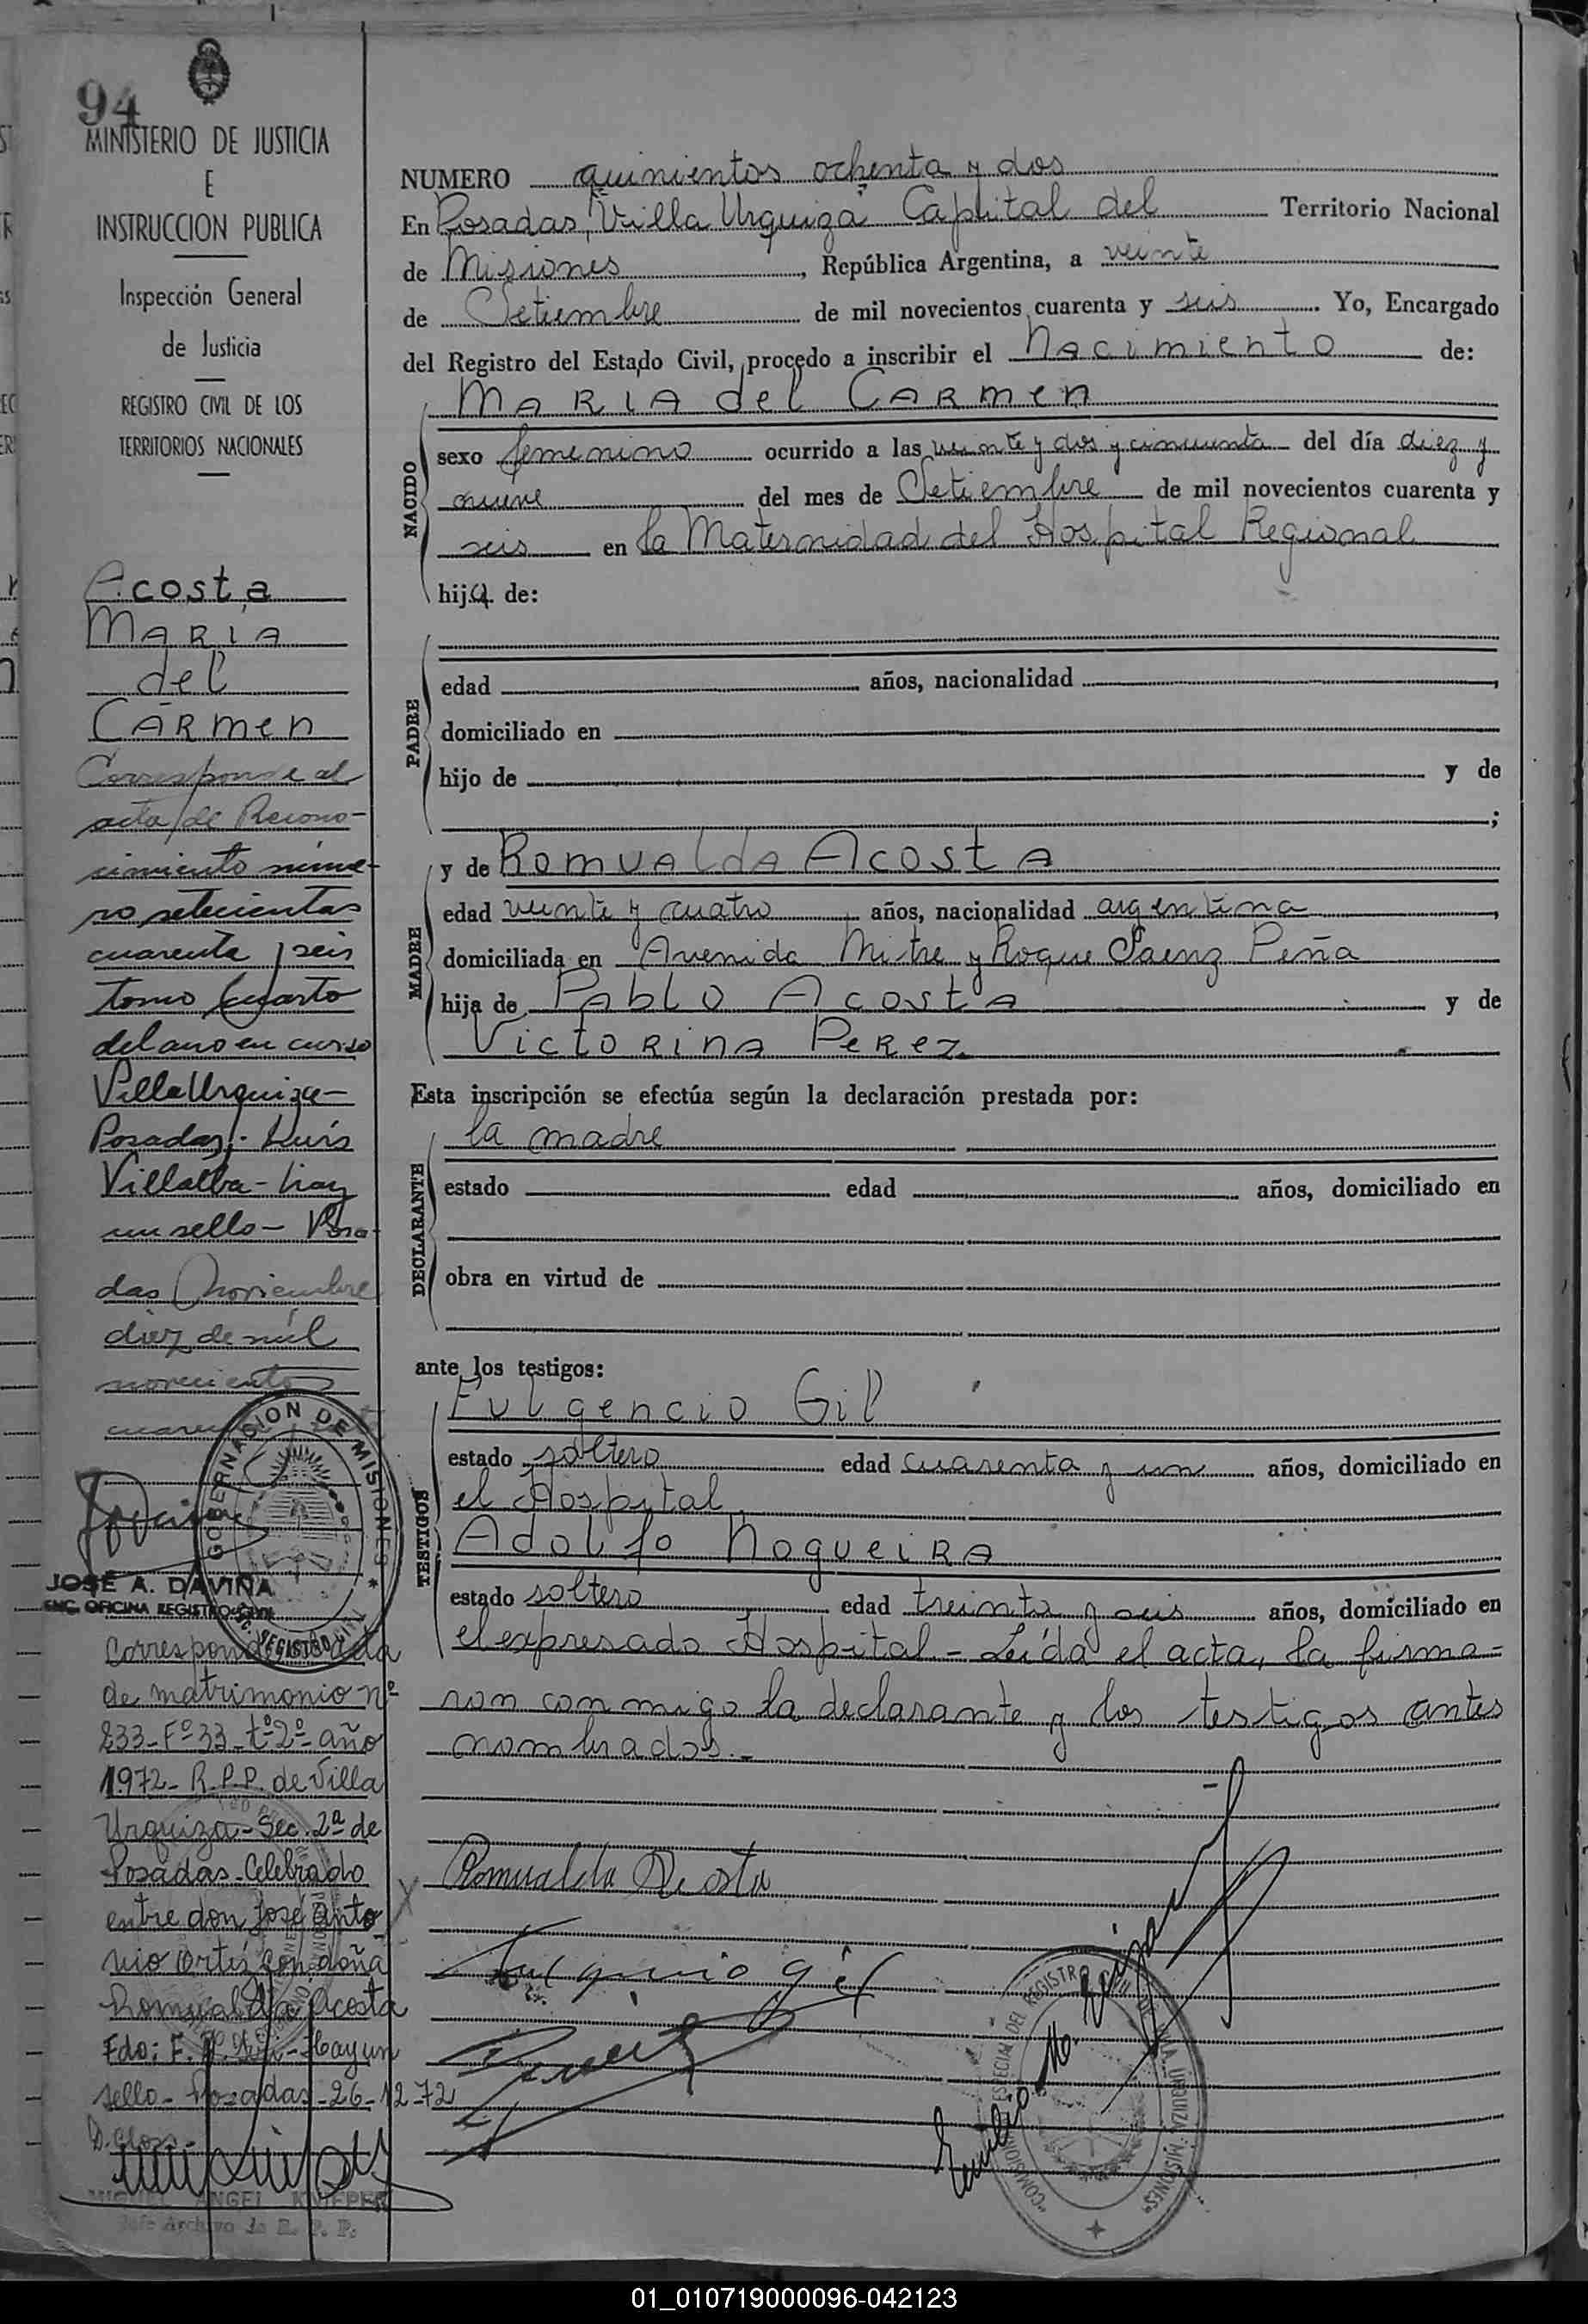 94
MINISTERIO DE JUSTICIA
E
INSTRUCCION PUBLICA
Inspección General
de Justicia
REGISTRO CIVIL DE LOS
TERRITORIOS NACIONALES
Acosta
MARIA
del
CARmen
Corresponde al
acta de Recono-
cimiento núme-
ro setecientos
cuarenta y seis
tomo cuarto
del año en curso
Villa Urquiza-
Posadas,- Luis
Villalba- hay
un sello- Posa-
das Noviembre
diez de mil
novecientos
GOBERNACION DE MISIONES
REGISTRO CIVIL
JOSÉ A. DAVIÑA
ENC. OFICINA REGISTRO CIVIL
Corresponde acta
de matrimonio nº
233-Fº33-tº2º año
1972- R.P.P. de Villa
Urquiza- Sec. 2ª de
Posadas- Celebrado
entre don José Anto-
nio Ortiz con doña
Romualda Acosta
Fdo: F. Hay un
sello- Posadas-26-12-72
MIGUEL ANGEL KNIEPER
Jefe Archivo de R. P. P.
NUMERO quinientos ochenta y dos
En Posadas, "Villa Urquiza" Capital del Territorio Nacional
de Misiones, República Argentina, a veinte
de Setiembre de mil novecientos cuarenta y seis. Yo, Encargado
del Registro del Estado Civil, procedo a inscribir el Nacimiento de:
NACIDO
MARIA del CARmen
sexo femenino ocurrido a las veinte y dos y cincuenta del día diez y
nueve del mes de Setiembre de mil novecientos cuarenta y
seis en la Maternidad del Hospital Regional
hija de:
PADRE
edad años, nacionalidad
domiciliado en
hijo de y de
;
MADRE
y de Romualda Acosta
edad veinte y cuatro años, nacionalidad argentina,
domiciliada en Avenida Mitre y Roque Saenz Peña
hija de Pablo Acosta y de
Victorina Perez
Esta inscripción se efectúa según la declaración prestada por:
DECLARANTE
la madre
estado edad años, domiciliado en
obra en virtud de
ante los testigos:
TESTIGOS
Fulgencio Gil
estado soltero edad cuarenta y un años, domiciliado en
el Hospital
Adolfo Nogueira
estado soltero edad treinta y seis años, domiciliado en
el expresado Hospital.- Leída el acta, la firma=
ron conmigo la declarante y los testigos antes
nombrados.-
Romualda Acosta
Fulgencio Gil
Emilio M.
COMISION ESPECIAL DEL REGISTRO CIVIL VILLA URQUIZA MISIONES
01_010719000096-042123